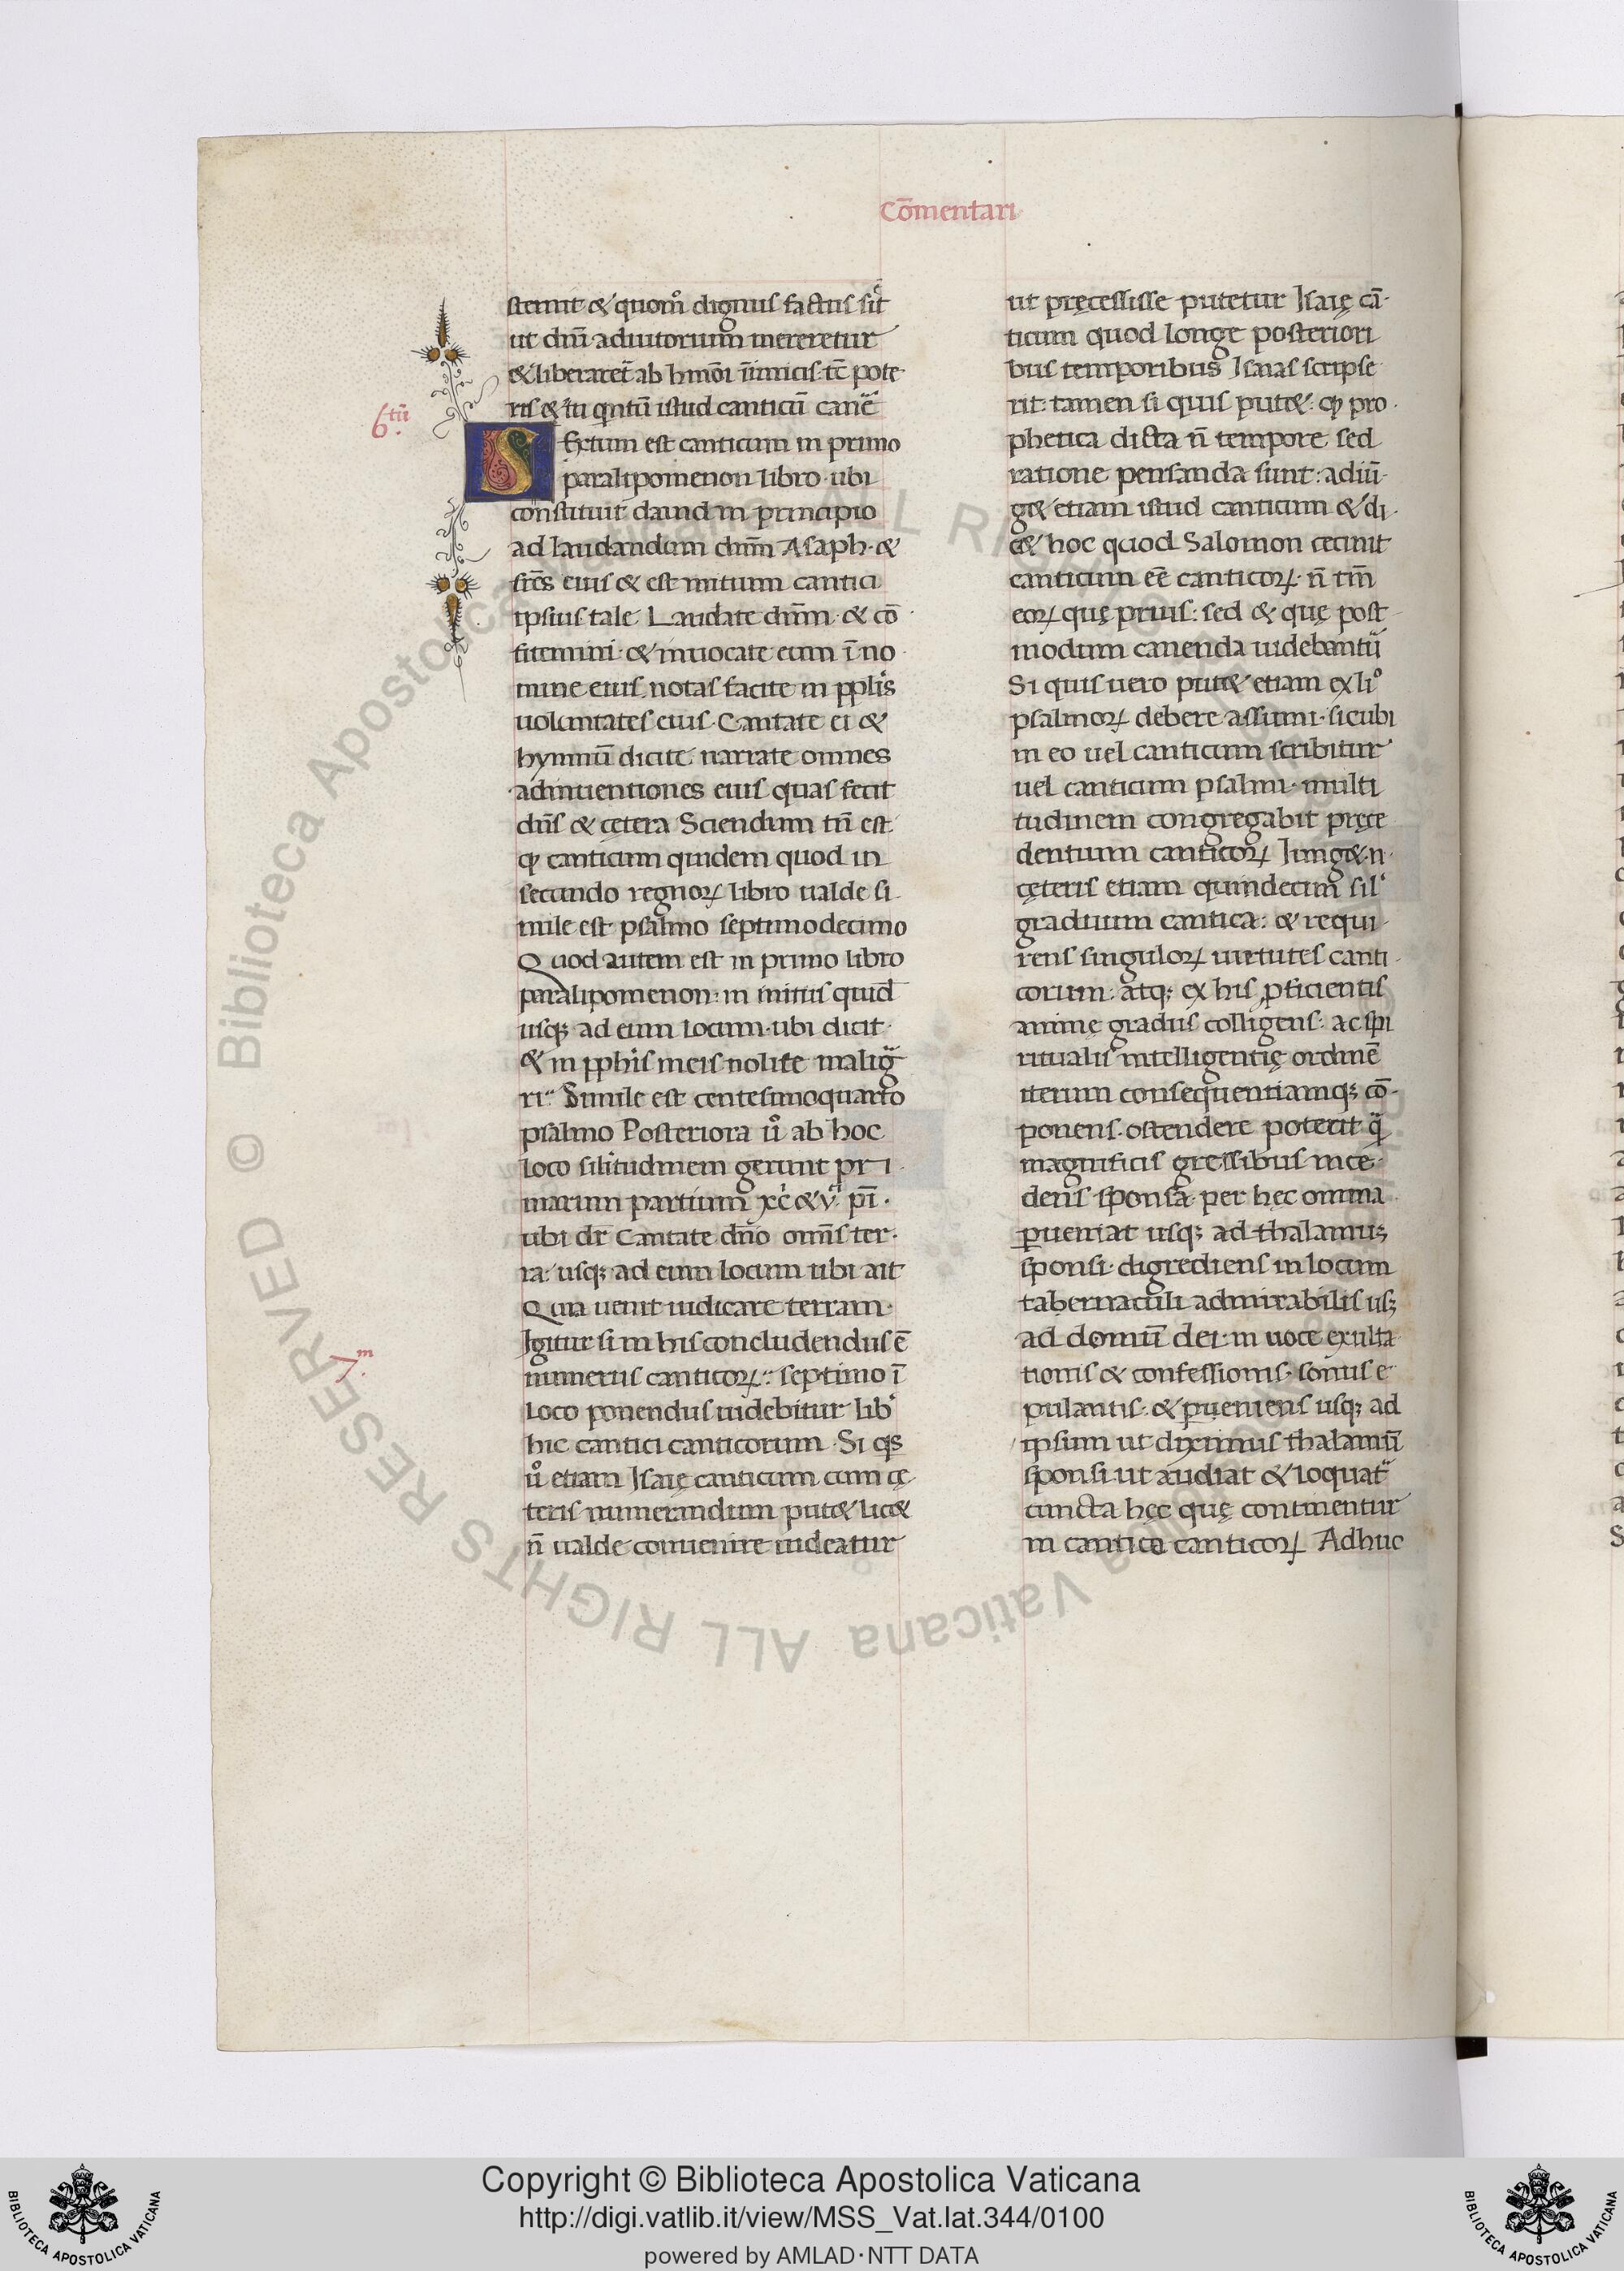 Cōmentari
sternit & quom̊ dignus factus sit
ut dn̄i adiutorium mereretur
& liberaret̄ ab hmōi inimicis: tc̄ pote
ris & tu
istud canticū
6.tū
Sextum est canticum in primo
paralipomenon libro ubi
constituit dauid in principio
ad laudandum dn̄m Asaph · &
fr̄es eius & est initium cantici
ipsius tale. Laudate dn̄m · & cō
fitemini · & inuocate eum ī no
mine eius notas facite in pplis
uoluntates eius · Cantate ei &
hymnū dicite narrate omnes
adinuentiones eius quas fecit
dn̄s & cętera Sciendum tn̄ est
ꝙ canticum quidem quod in
secundo regnoꝝ libro ualde si
mile est psalmo septimodecimo
Quod autem est in primo libro
paralipomenon: in initiis quid
usqꝫ ad eum locum · ubi dicit ·
& in pphis meis nolite malig
ri Simile est centesimoquarto
psalmo Posteriora ů ab hoc
loco silitudinem gerunt pri
marum partium
ubi dr̄ Cantate dn̄o omīs ter
ra: usqꝫ ad eum locum ubi ait
Quia uenit iudicare terram ·
Igitur si in his concludendus ē
7.m
numerus canticoꝝ: septimo ī
loco ponendus uidebitur lib
hic cantici canticorum · Si qs
ů etiam Isaię canticum cum cę
teris numerandum put& lic&
n̄ ualde conuenire uideatur
ut pręcessisse putetur Isaię cā
ticum quod longe posteriori
bus temporibus Isaias scripse
rit: tamen si quis put&: ꝙ pro
phetica dicta n̄ tempore sed
ratione pensanda sunt: adiū
g& etiam istud canticum & di
c& hoc quod Salomon cecinit
canticum eē canticoꝝ · n̄ tm̄
eoꝝ quę prius: sed & quę post
modum canenda uidebant
Si quis uero put& etiam ex li°
psalmoꝝ debere assumi · sicubi
in eo uel canticum scribitur
uel canticum psalmi · multi
tudinem congregabit pręce
dentium canticoꝝ Iung& n
cęteris etiam quindecim sil
graduum cantica: & requi
rens singuloꝝ uirtutes canti
corum: atqꝫ ex his ꝓficientis
animę gradus colligens: ac spi
ritualis intelligentię ordinē
iterum consequentiamqꝫ cō
ponens · ostendere poterit q̄
magnificis gressibus ince
dens sponsa per hęc omnia
ꝑueniat usqꝫ ad thalamū
sponsi · digrediens in locum
tabernaculi admirabilis usꝫ
ad domū dei · in uoce exulta
tionis & confessionis · sonus e
pulantis · & ꝑueniens usqꝫ ad
ipsum ut diximus thalamū
sponsi · ut audiat & loquat
cuncta hęc quę continentur
in cantico canticoꝝ Adhuc
© Biblioteca Apostolica Vaticana ALL RIGHTS RESERVED
Copyright © Biblioteca Apostolica Vaticana
http://digi.vatlib.it/view/MSS_Vat.lat.344/0100
powered by AMLAD·NTT DATA
BIBLIOTECA APOSTOLICA VATICANA
BIBLIOTECA APOSTOLICA VATICANA